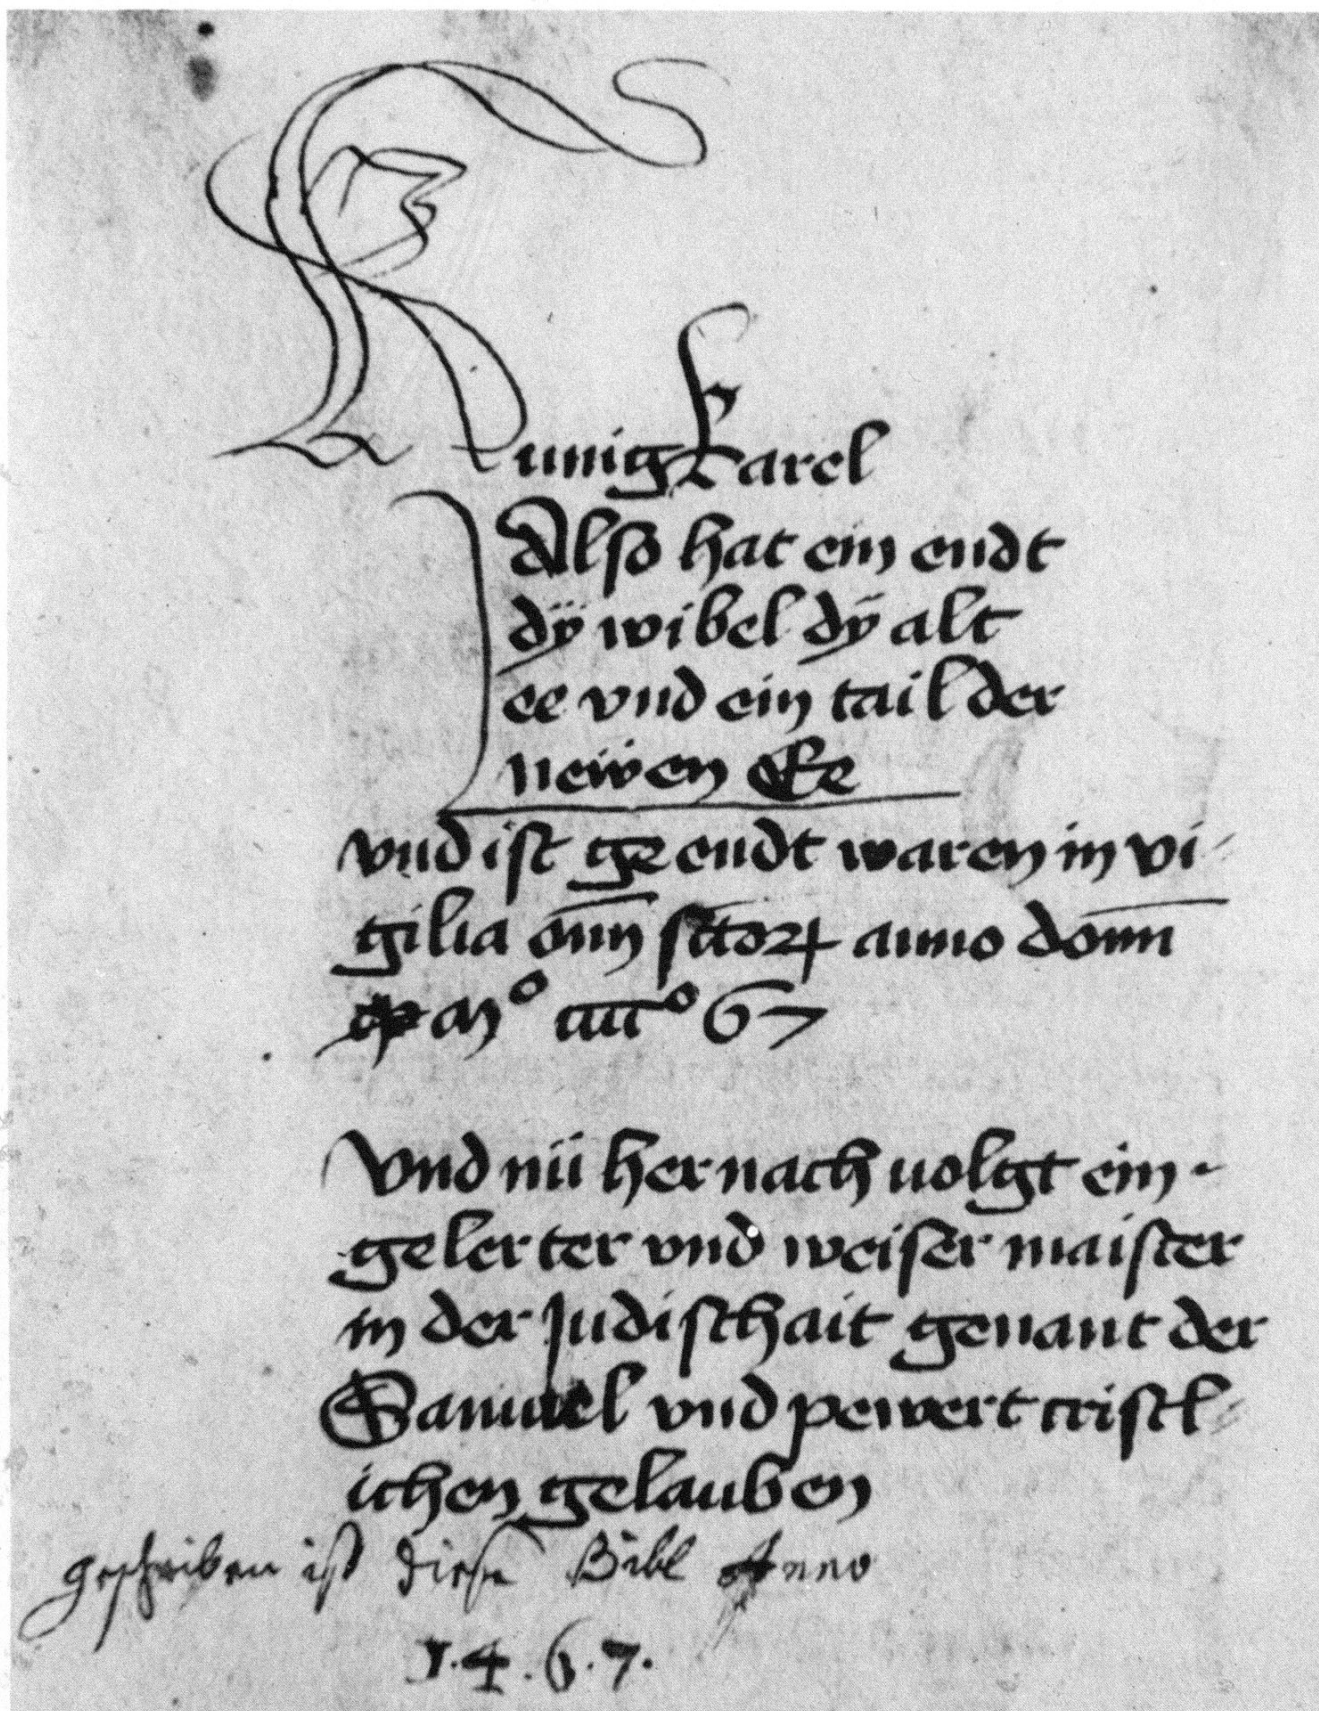 Kunig Karel
Also hat ein endt
dÿ wibel dÿ alt
ee vnd ein tail der
neẅen Ee
vnd ist geendt waren in vi-
gilia om̄ sctoꝝ anno dom̄
mº cccc º 67
Vnd nü hernach uolgt ein
gelerter vnd weiser maister
in der Judischait genant der
Samuel vnd pewert cristl-
ichen gelauben
geschriben ist diese Bibl Anno
1.4.6.7.